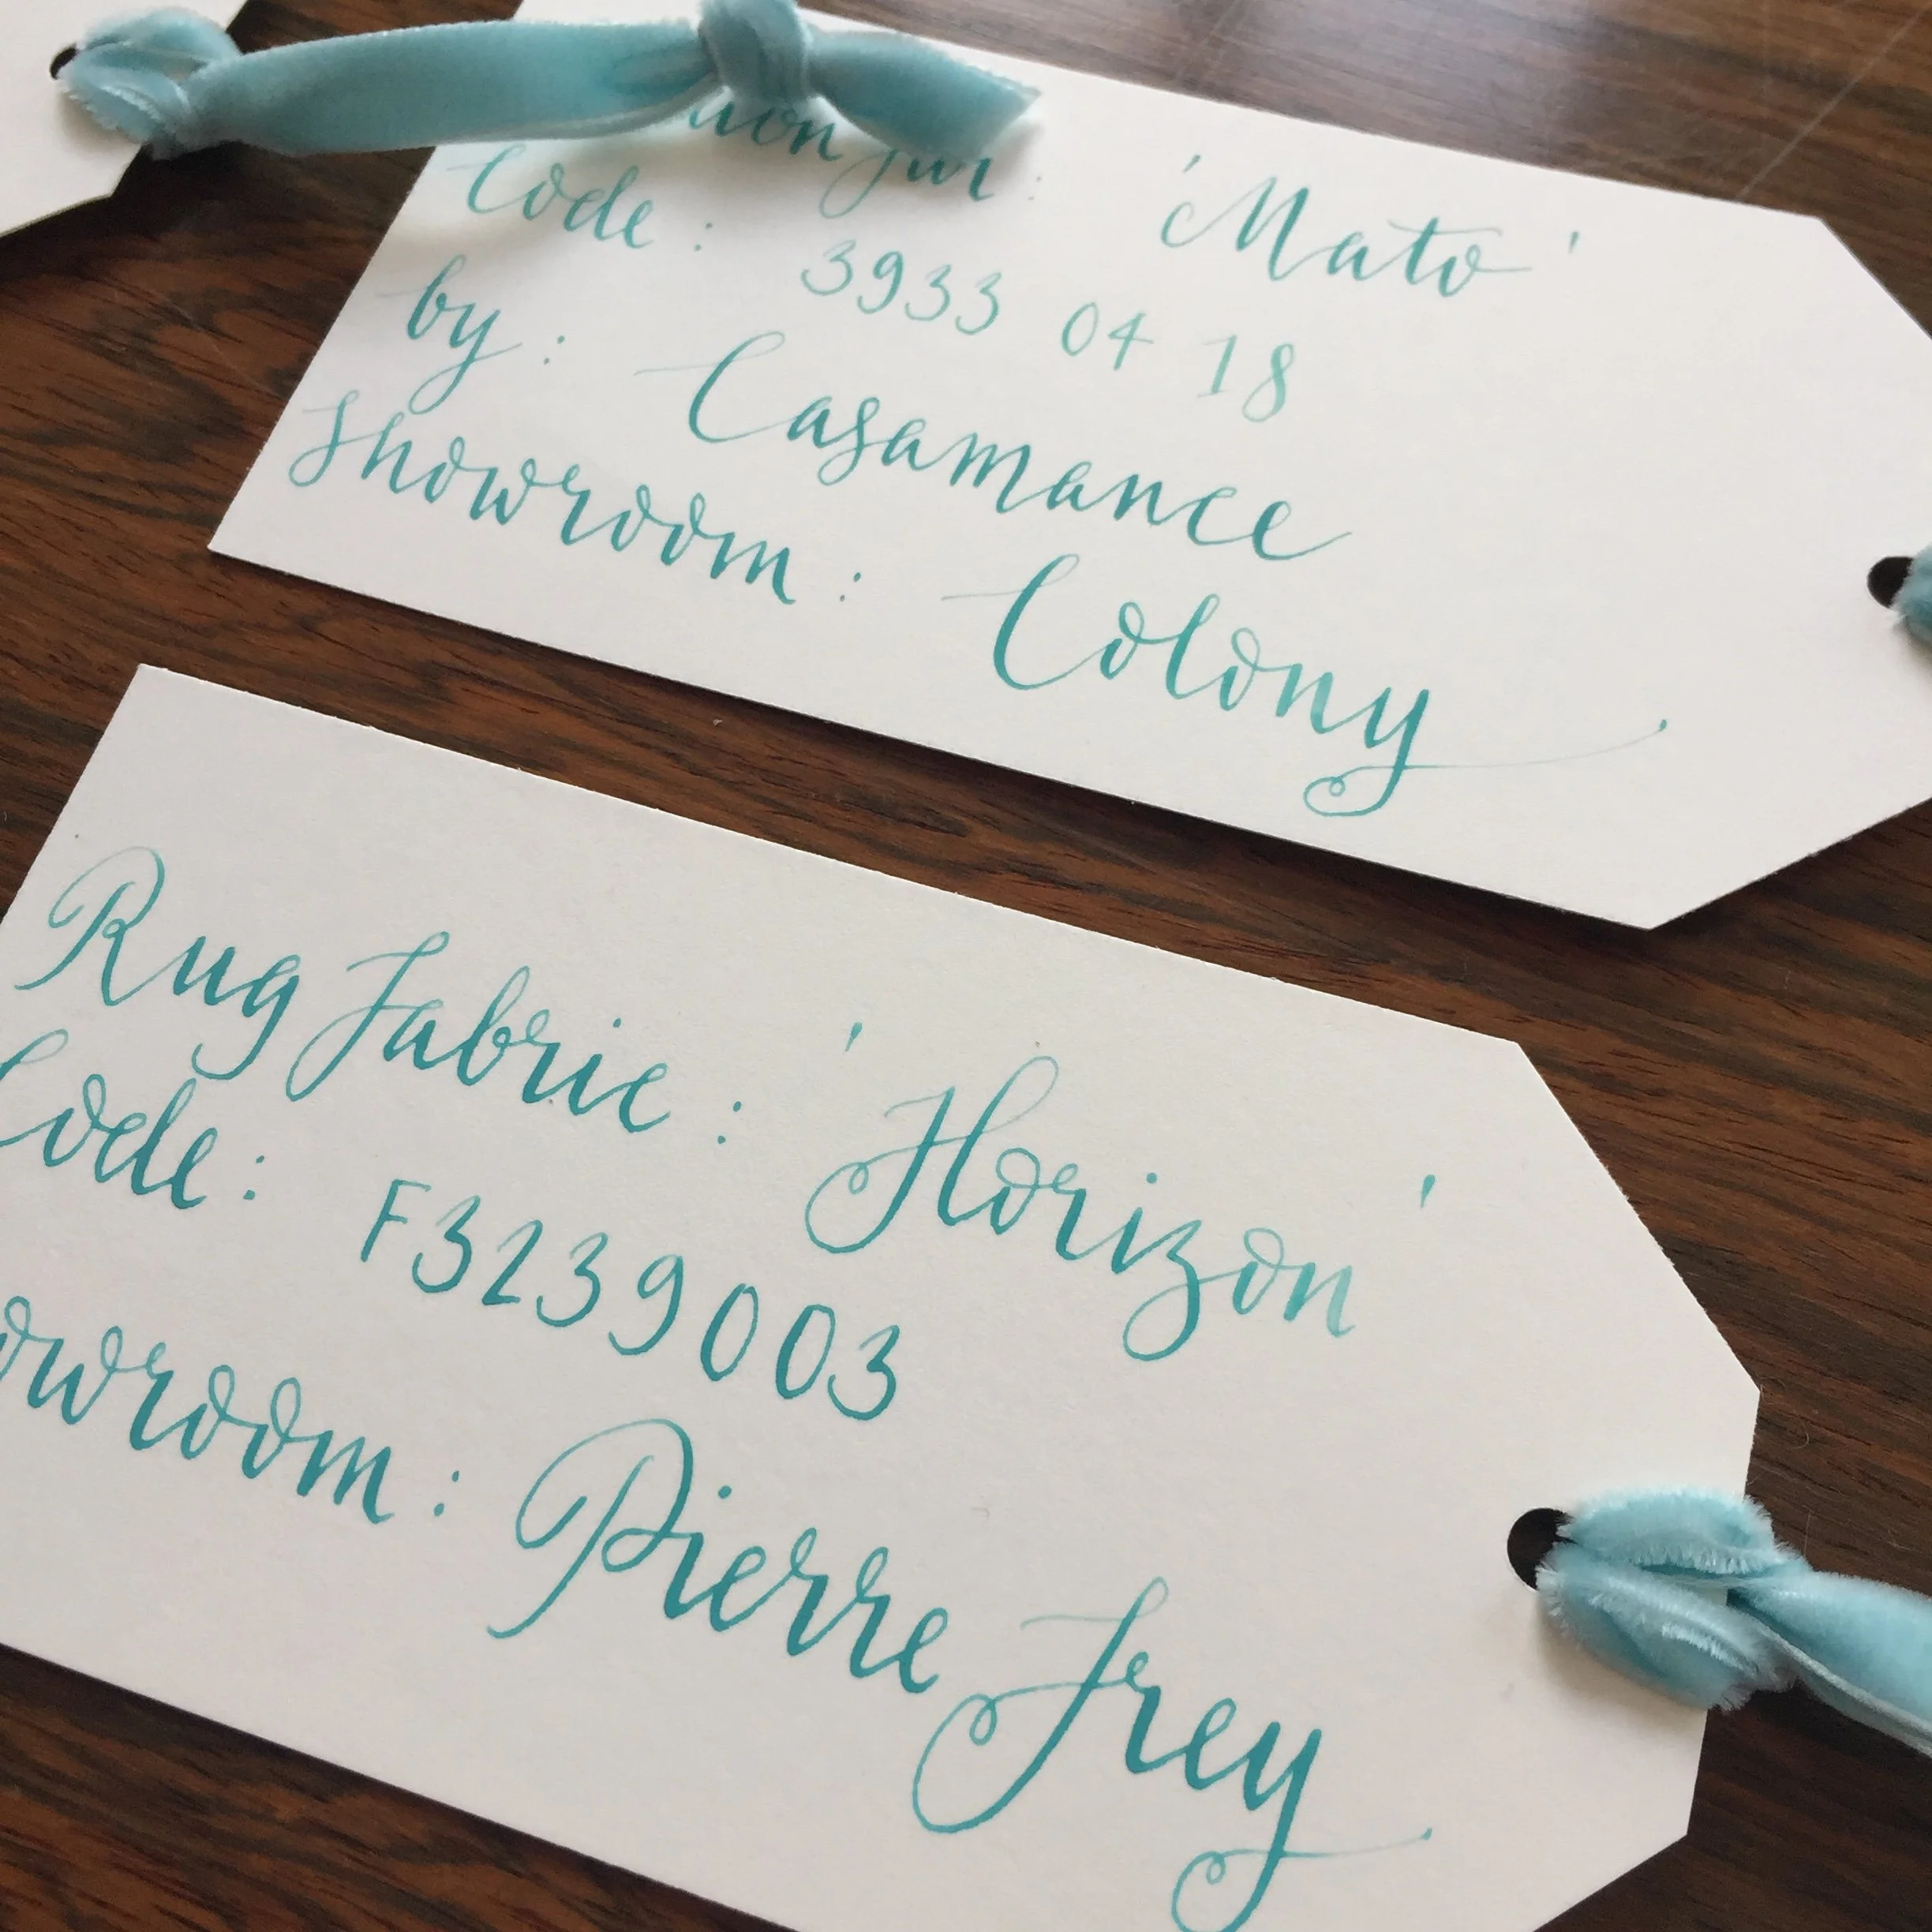 fur : 'Mato'
Code : 3933 04 18
by : Casamance
Showroom : Colony
Rug Fabric : 'Horizon'
Code : F3239003
owroom : Pierre Frey